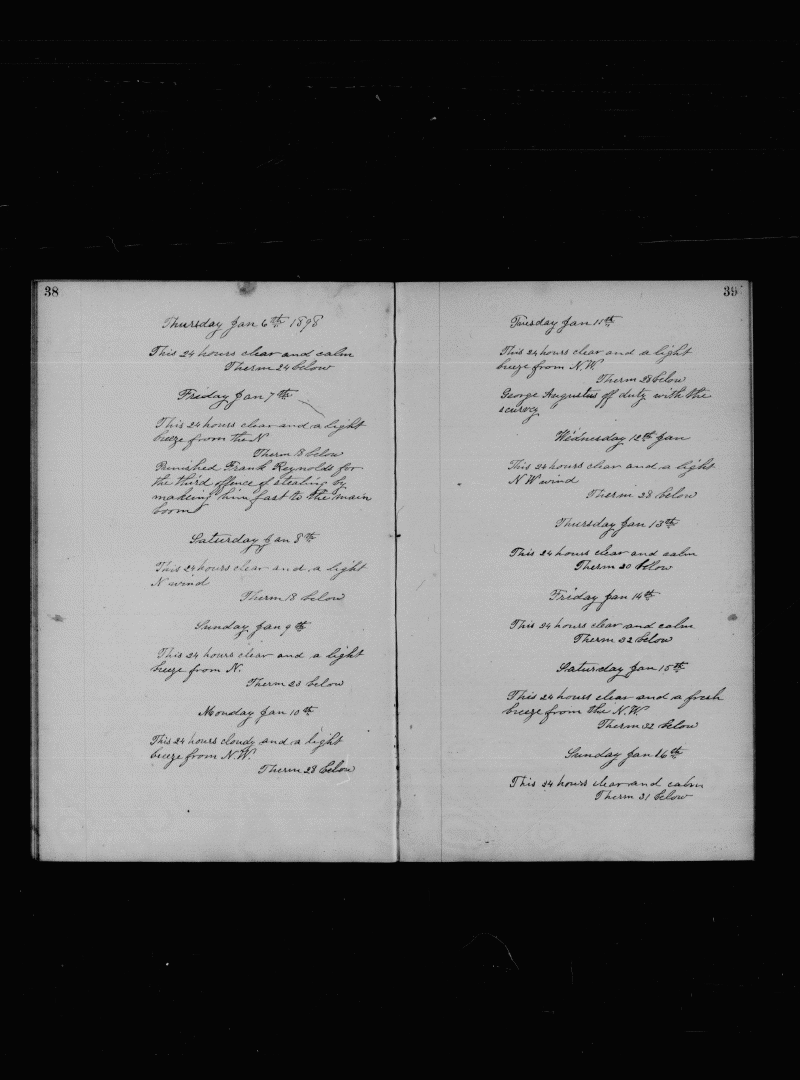 38
Thursday Jan 6th 1898
This 24 hours clear and calm
Therm 24 below
Friday Jan 7th
This 24 hours clear and a light
breeze from the N
Therm 18 below
Punished Frank Reynolds for
the third offence of stealing by
making him fast to the main
boom
Saturday Jan 8th
This 24 hours clear and a light
N wind
Therm 18 below
Sunday Jan 9th
This 24 hours clear and a light
breeze from N.
Therm 23 below
Monday Jan 10th
This 24 hours cloudy and a light
breeze from N.W.
Therm 28 below
39
Tuesday Jan 11th
This 24 hours clear and a light
breeze from N.W.
Therm 28 below
George Augustus off duty with the
scurvy
Wednesday 12th Jan
This 24 hours clear and a light
N W wind
Therm 28 below
Thursday Jan 13th
This 24 hours clear and calm
Therm 20 below
Friday Jan 14th
This 24 hours clear and calm
Therm 22 below
Saturday Jan 15th
This 24 hours clear and a fresh
breeze from the N.W.
Therm 32 below
Sunday Jan 16th
This 24 hours clear and calm
Therm 31 below